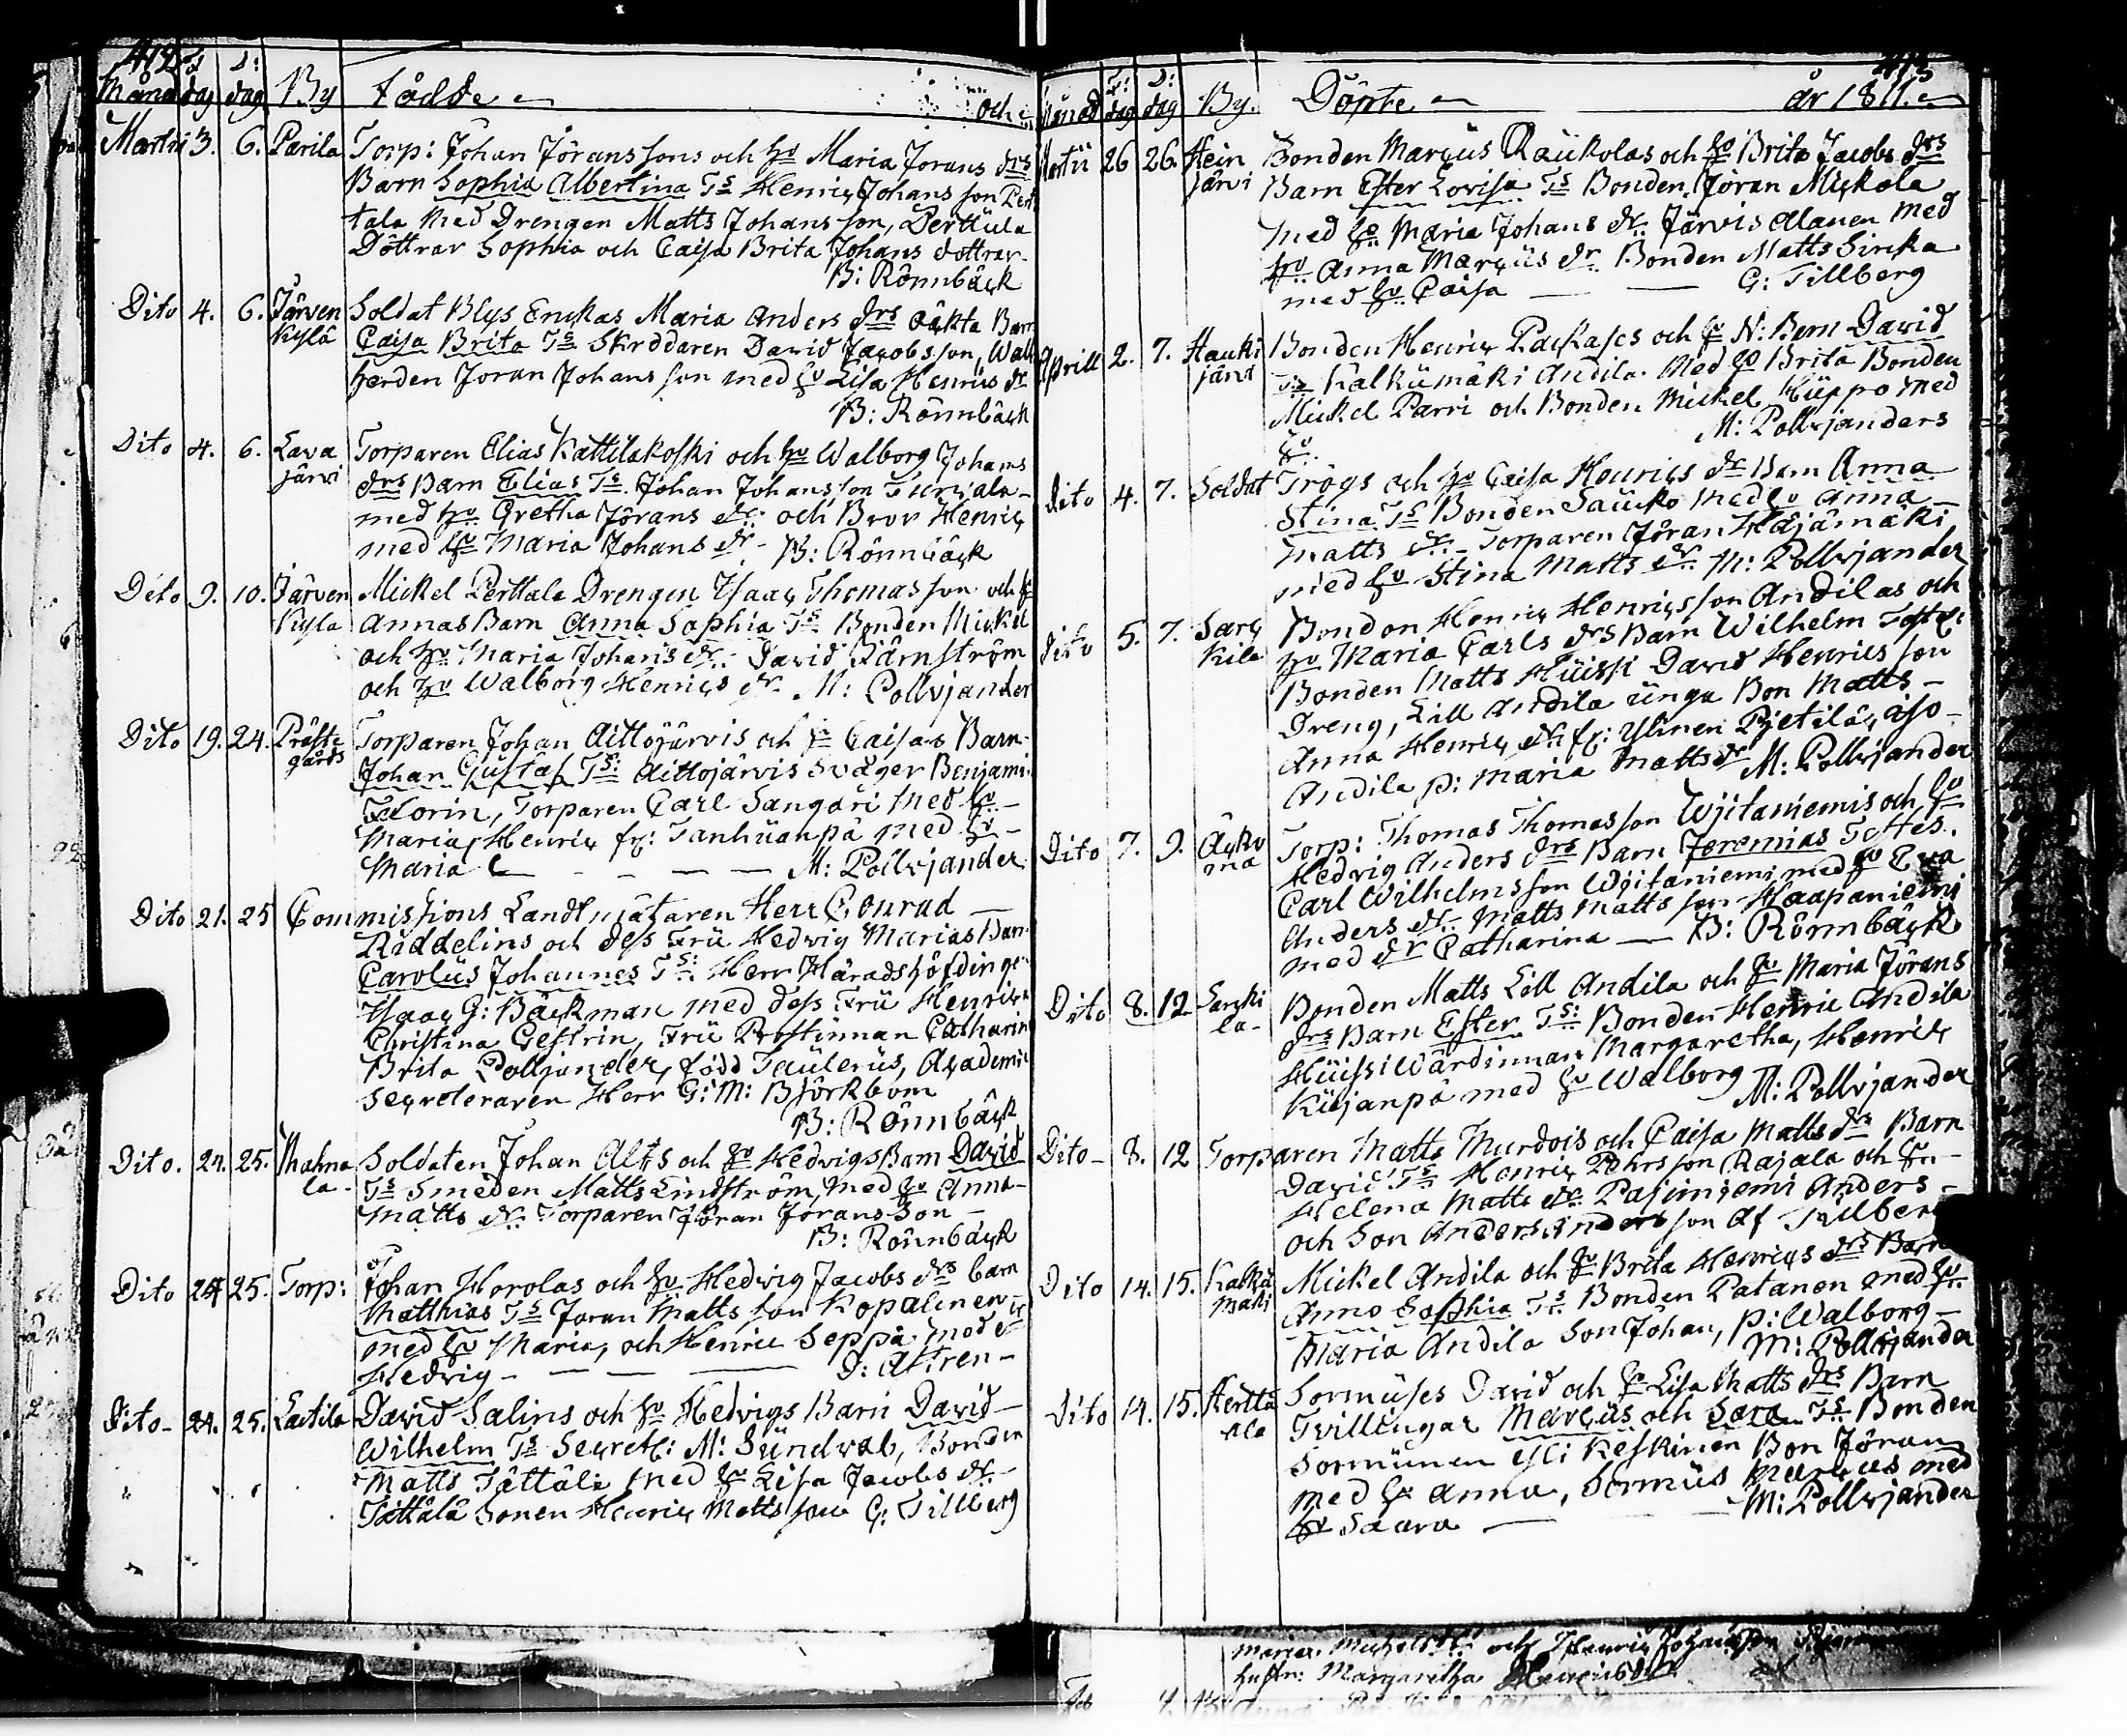 412
Månad F: dag D: dag By födde och
Martii 3. 6. Parila Torp: Johan Jöranssons och hu Maria Jorans drs
Barn Sophia Albertina Ts Henric Johansson Pert
tala med Drengen Matts Johansson, Perttula
Döttrar Sophia och Caisa Brita Johans dottrar
B: Rönnbäck
Dito 4. 6. Järven Soldat Blys Erickas Maria Anders drs äckta Barn
kylä Caisa Brita Ts Skräddaren David Jacobsson, Wall
herden Joran Johansson med hu Lisa Henrics dr
B: Rönnbäck
Dito 4. 6. Lava Torparen Elias Kattilakoski och hu Walborg Johans
järvi drs Barn Elias Ts Johan Johansson
med hu Gretha Jörans dr och Bror Henric
med hu Maria Johans dr - B: Rönnbäck
Dito 9. 10. Järven Mickel Perttala Drengen Isaac Thomasson och hu
kyla Annas Barn Anna Sophia Ts Bonden Mickel
och hu Maria Johans dr - David Järnström
och hu Walborg Henrics dr M: Polviander
Dito 19. 24. Präste Torparen Johan Aittojärvis och hu Caisas Barn
gårds Johan Gustaf Ts: Aittojärvis Svåger Benjami
Florin, Torparen Carl Sangari med hu
Maria, Henric fr: Tanhuanpä med hu
Maria M: Polviander
Dito 21. 25 Commissions Landtmätaren Herr Conrad
Riddelins och dess Fru Hedvig Marias Barn
Carolus Johannes Ts: Herr Häradshöfdingen
Isaac G: Bäckman med dess Fru Henrica
Christina Gestrin, Fru Prostinnan Catharin
Brita Polviander, född Taulerus, Academie
Secreteraren Herr G: M: Björkbom
B: Rönnbäck
Dito. 24. 25. Mahna Soldaten Johan Alts och hu Hedvigs Barn David
la Ts Smeden Matts Lindström, med hu Anna
Matts dr Torparen Jöran Joransson
B: Rönnbäck
Dito 24 25. Torp: Johan Horolas och hu Hedvig Jacobs drs barn
Matthias Ts Joran Mattsson Kopalinen
med hu Maria, och Henric Seppä med dr
Hedvig D: Astren
Dito 24. 25. Lattila David Salins och hu Hedvigs Barn David
Wilhelm Ts Secret: M: Sundvall, Bonden
Matts Tättälä med hu Lisa Jacobs dr
Tättälä Sonen Henric Mattsson G: Tillberg
413
Månad F: dag D: dag By. Döpte år 1811.
Martii 26 26. Hein Bonden Marcus Raukolas och hu Brita Jacobs drs
järvi Barn Ester Lovisa Ts Bonden Jöran Mickola
med hu Maria Johans dr Järvis Alanen med
hu Anna Marcus dr Bonden Matts Sirka
med hu Caisa G: Tillberg
Aprill 2. 7. Hauki Bonden Henric Packases och hu N: Barn David
järvi Ts Kalkumäki Andila med hu Brita Bonden
Mickel Parri och Bonden Mickel Huppo med
hu M: Polvjanders
Dito 4. 7. Soldat Trögs och hu Caisa Henrics dr Barn Anna
Stina Ts Bonden Saucko med hu Anna
Matts dr Torparen Jöran Hajamäki
med hu Stina Matts dr M: Polvjander
Dito 5. 7. Sarc Bonden Henric Henricsson Andilas och
kila hu Maria Carls drs Barn Wilhelm
Bonden Matts Huissi David Henricsson
Dreng, Lill Andila unga Bon Matts
Anna Henric dr fr: Ylinen Pjetilä,
Andila p: Maria Matts dr M: Polvjander
Dito 7. 9. Torp: Thomas Thomasson Wjitaniemis och hu
Hedvig Anders drs Barn Jeremias Testes.
Carl Wilhelmsson Wjitaniemi med hu Eva
Anders dr Matts Mattsson Haapaniemi
med dr Catharina B: Rönnbäck
Dito 8. 12. Sarcki Bonden Matts Lill Andila och hu Maria Jörans
la drs Barn Ester Ts: Bonden Henric Andila
Huissi Wärdinnan Margaretha, Henric
Kujanpä med hu Walborg M: Polvjander
Dito 8. 12 Torparen Matts Murdois och Caisa Matts dr Barn
David Ts Henric Pehrsson Rajala och hu
Helena Matts dr Pasjniemi Anders
och Son Anders Andersson af Tillberg
Dito 14. 15. Kalku Mickel Andila och hu Brita Henrics drs Barn
mäki Anna Sophia Ts Bonden Patanen med hu
Maria Andila Son Johan, p: Walborg
M: Polvjander
Dito 14. 15. Hertta Sormuses David och hu Lisa Matts drs Barn
ala Tvillingar Marcus och Sara Ts Bonden
Sormunen Keskinen Bon Jöran
med hu Anna, Sormus Marcus med
hu Saara M: Polvjander
Maria Michels dr och Henric Johansson
hustr: Margaretha Henricsdr
Feb